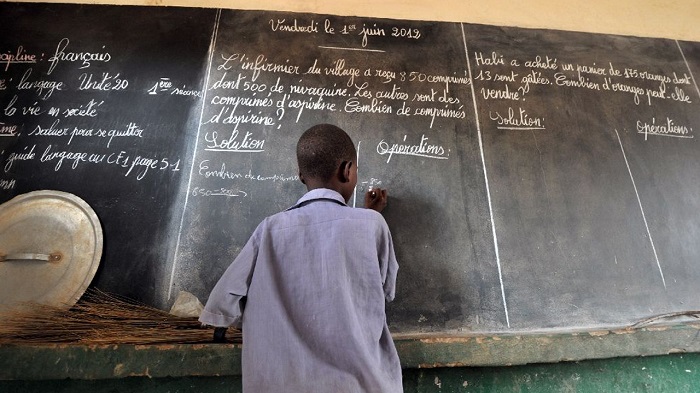 Vendredi le 1er juin 2012
Discipline : français
langage Unité 20
1ère séance
la vie en société
saluer pour se quitter
guide langage au CF1 page 51
L'infirmier du village a reçu 850 comprimés
dont 500 de nivaquine. Les autres sont des
comprimés d'aspirine. Combien de comprimés
d'aspirine ?
Solution
Opérations :
Combien de comprimés
850 - 500
850
Habi a acheté un panier de 175 oranges dont
13 sont gâtées. Combien d'oranges peut-elle
vendre ?
Solution :
Opérations :